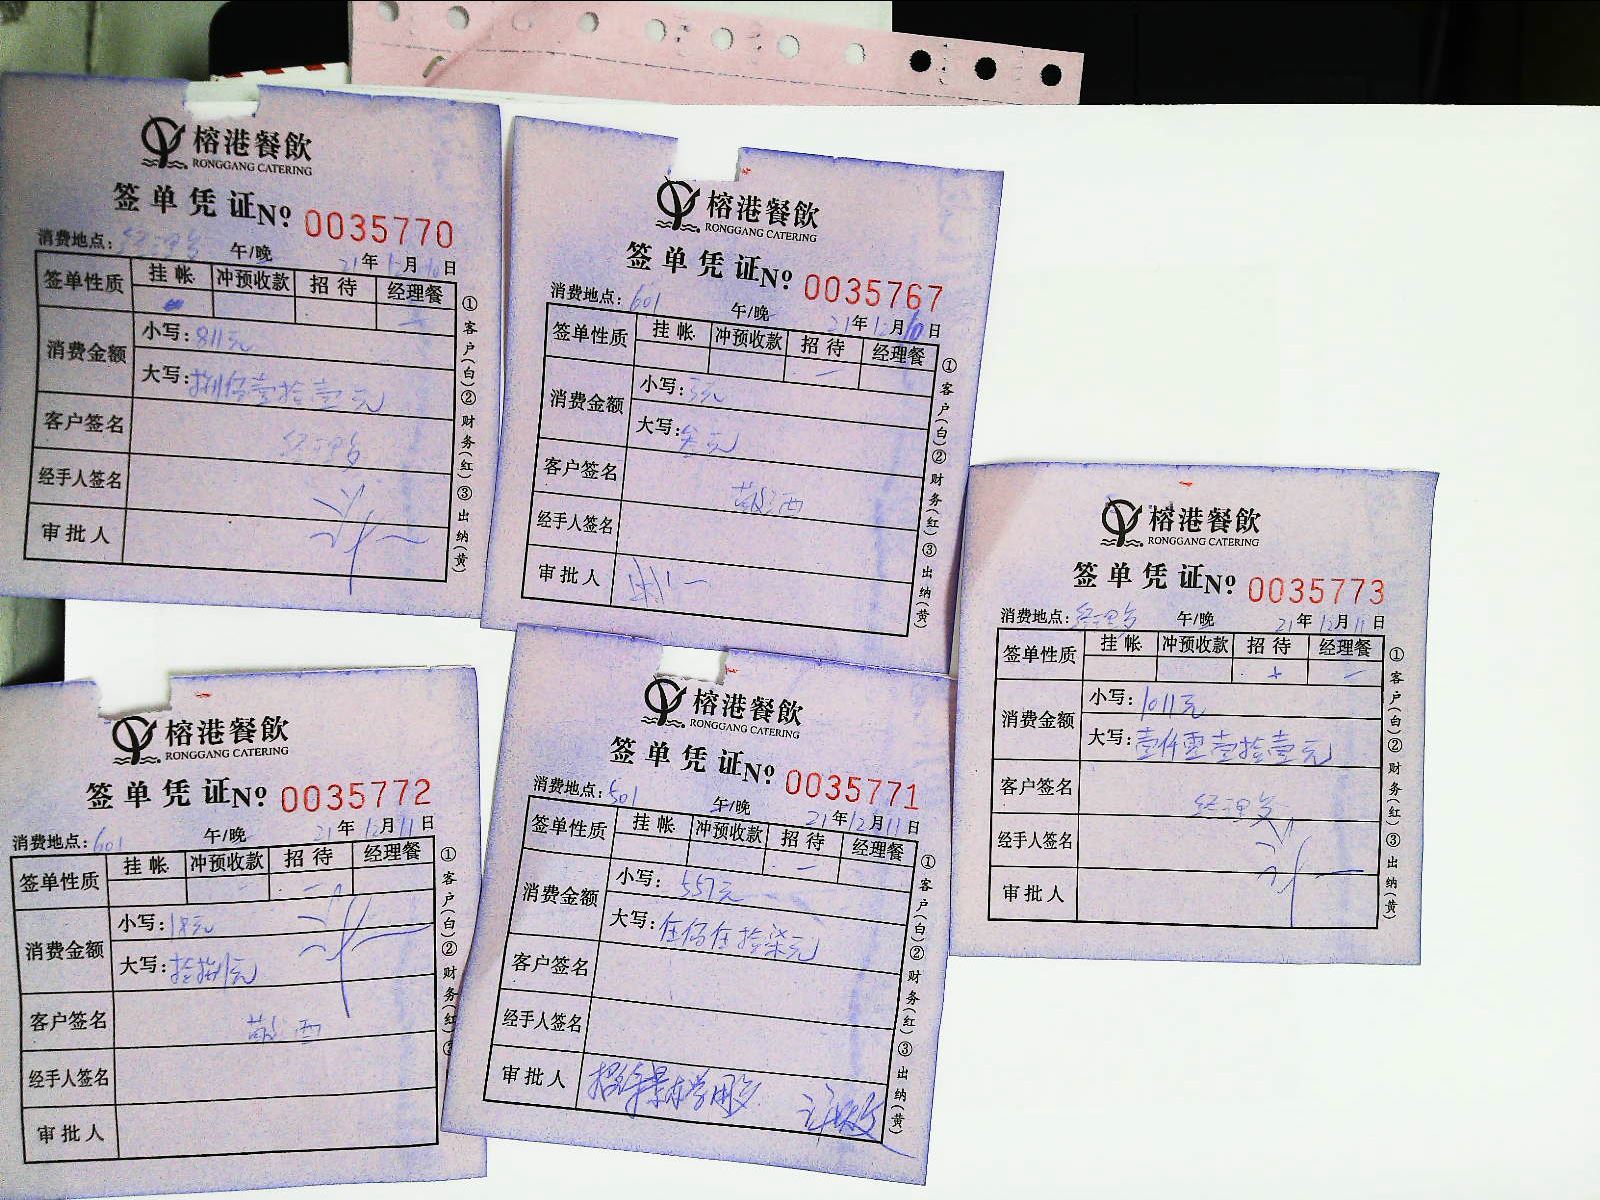 榕港餐飲
RONGGANG CATERING
签单凭证№ 0035770
消费地点：经理餐 午/晚 21年12月10日
签单性质 挂帐 冲预收款 招待 经理餐
消费金额 小写：811元
大写：捌佰壹拾壹元
客户签名 经理餐
经手人签名
审批人
①客户(白)②财务(红)③出纳(黄)
榕港餐飲
RONGGANG CATERING
签单凭证№ 0035767
消费地点：601 午/晚 21年12月10日
签单性质 挂帐 冲预收款 招待 经理餐
消费金额 小写：3元
大写：叁元
客户签名
经手人签名
审批人
①客户(白)②财务(红)③出纳(黄)
榕港餐飲
RONGGANG CATERING
签单凭证№ 0035773
消费地点：经理餐 午/晚 21年12月11日
签单性质 挂帐 冲预收款 招待 经理餐
消费金额 小写：1011元
大写：壹仟零壹拾壹元
客户签名 经理餐
经手人签名
审批人
①客户(白)②财务(红)③出纳(黄)
榕港餐飲
RONGGANG CATERING
签单凭证№ 0035772
消费地点：601 午/晚 21年12月11日
签单性质 挂帐 冲预收款 招待 经理餐
消费金额 小写：18元
大写：拾捌元
客户签名
经手人签名
审批人
①客户(白)②财务(红)③
榕港餐飲
RONGGANG CATERING
签单凭证№ 0035771
消费地点：501 午/晚 21年12月11日
签单性质 挂帐 冲预收款 招待 经理餐
消费金额 小写：557元
大写：伍佰伍拾柒元
客户签名
经手人签名
审批人
①客户(白)②财务(红)③出纳(黄)